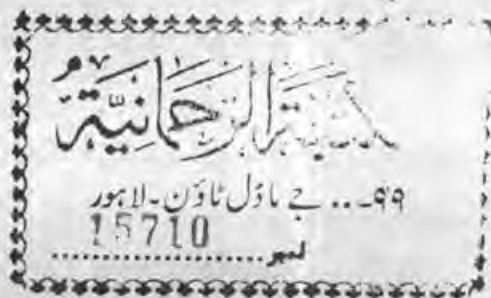 الرحمانِيَّةُ
۹۹-.. جے ماڈل ٹاؤن-لاہور
15710
نمبر....................